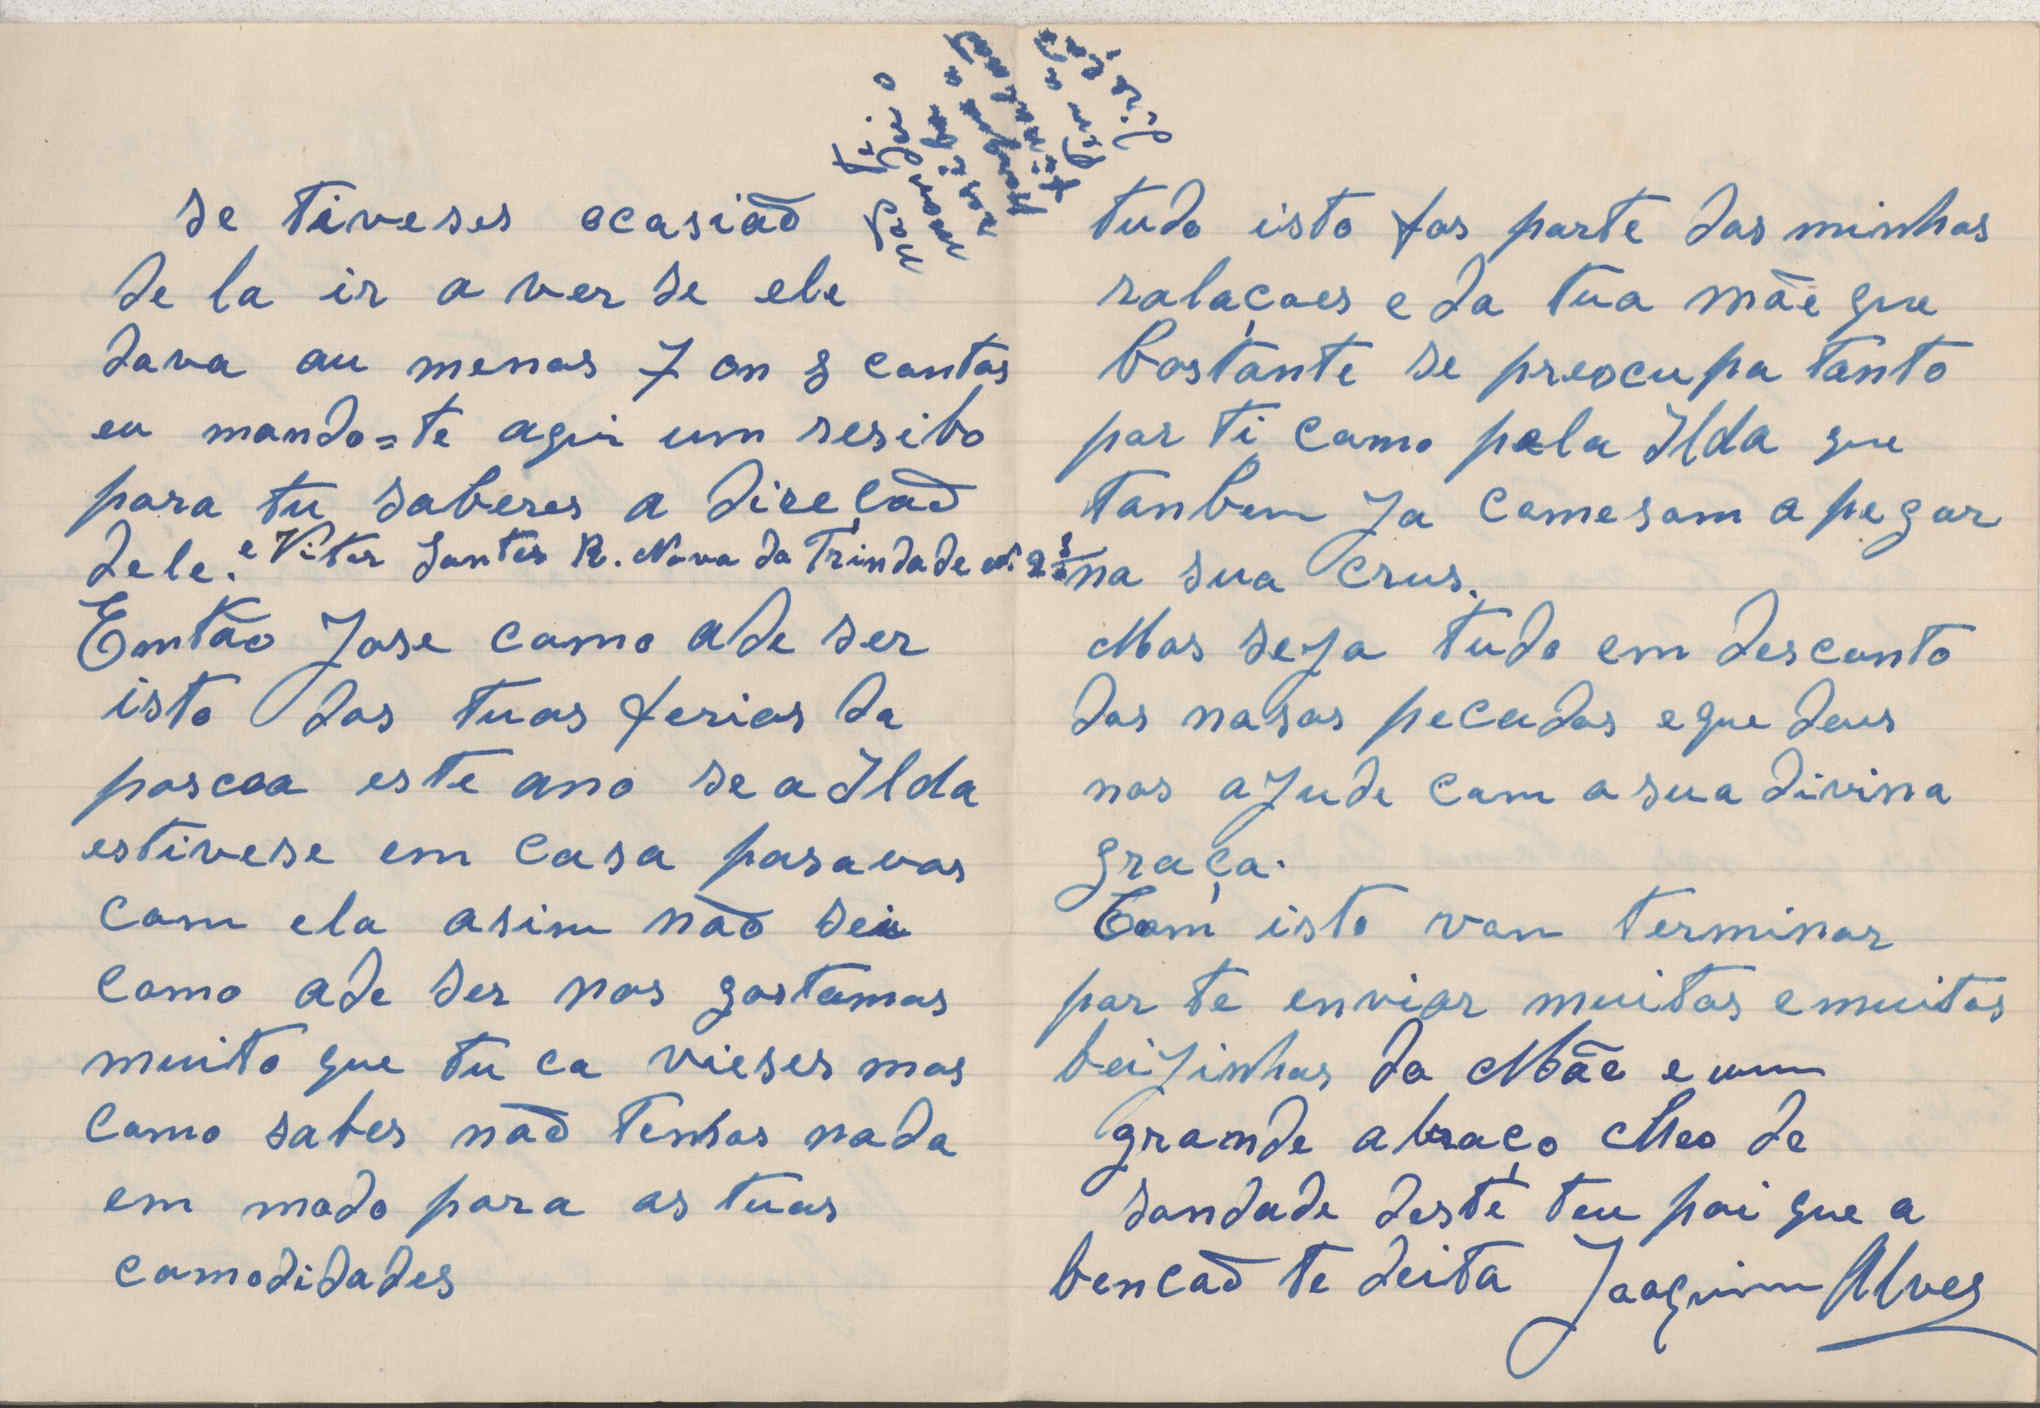 se tiveses ocasiaõ
de la ir a ver se ele
dava au menos 7 ou 8 contos
eu mando=te aqui um resibo
para tu saberes a direçaõ
dele. e Vitor Santos R. Nova da Trindade
Emtão Jose como ade ser
isto das tuas ferias da
pascoa este ano se a Ilda
estivese em casa pasavas
com ela asim naõ sei
como ade ser nos gostamos
muito que tu ca vieses mas
como sabes naõ tenhos nada
em modo para as tuas
comodidades
tudo isto fas parte das minhas
ralaçoes e da tua mãe que
bastante se preocupa tanto
por ti como pela Ilda que
tanbem ja comesam a pegar
na sua crus.
Mas seja tudo em desconto
dos nasos pecados e que deus
nos ajude com a sua divina
graça.
Com isto vou terminar
por te enviar muitos e muitos
beijinhos da Mãe e um
grande abraço Meo de
saudade deste teu pai que a
bencaõ te deita Joaquim Alves